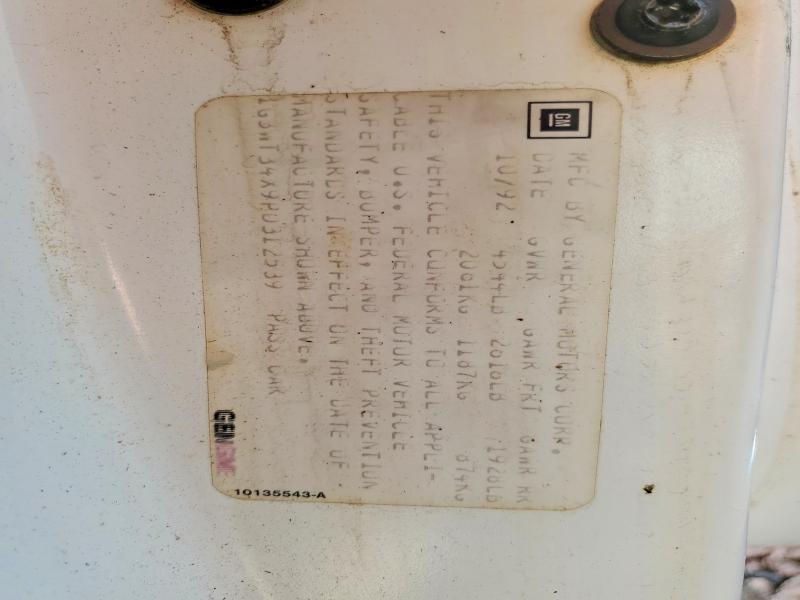 GM
MFG BY GENERAL MOTORS CORP.
DATE GVWR GAWR FRT GAWR RR
10/92 4544LB 2618LB 1926LB
2061KG 1187KG 874KG
THIS VEHICLE CONFORMS TO ALL APPLI-
CABLE U.S. FEDERAL MOTOR VEHICLE
SAFETY, BUMPER, AND THEFT PREVENTION
STANDARDS IN EFFECT ON THE DATE OF
MANUFACTURE SHOWN ABOVE.
1G3WT34X9PD312539 PASS CAR
10135543-A